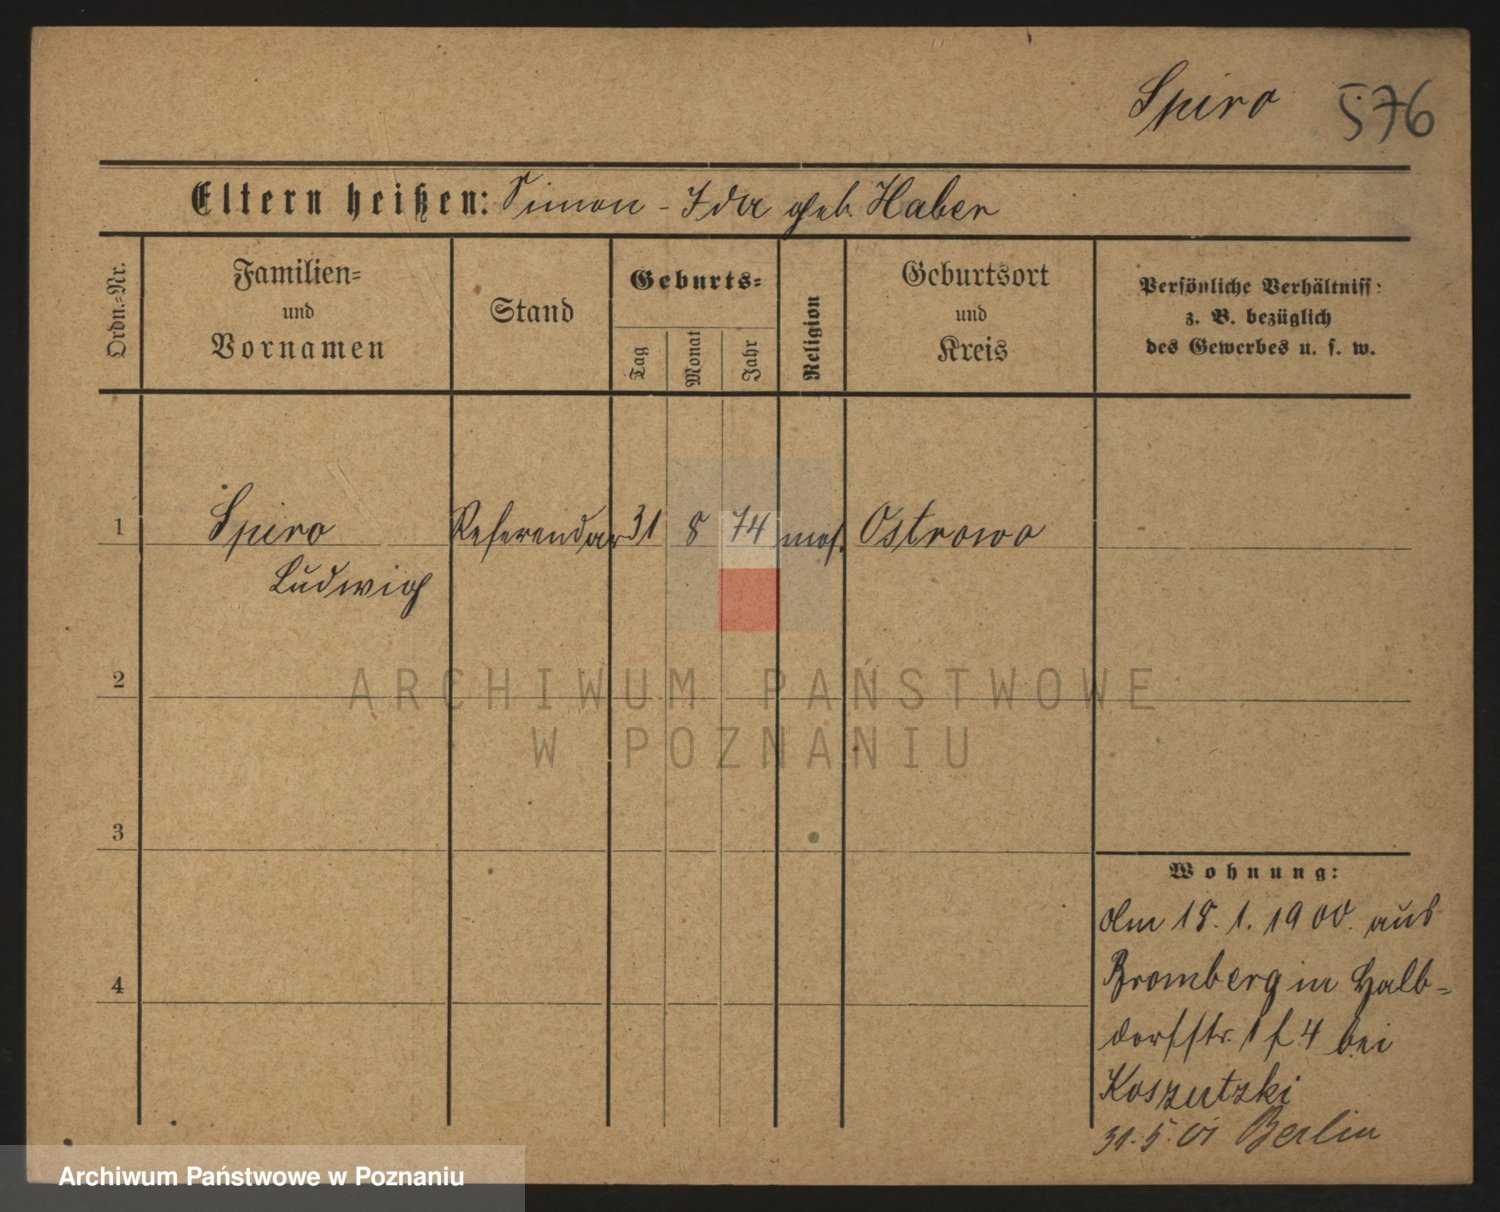 Spiro 576
Eltern heißen: Simon - Ida geb. Haber
Ordn.=Nr.
Familien=
und
Vornamen
Stand
Geburts=
Tag
Monat
Jahr
Religion
Geburtsort
und
Kreis
Persönliche Verhältniss:
z. B. bezüglich
des Gewerbes u. s. w.
1 Spiro Referendar 31 8 74 mos. Ostrowo
Ludwig
2
ARCHIWUM PAŃSTWOWE
W POZNANIU
3
Wohnung:
Am 18. 1. 1900. aus
4
Bromberg in Halb=
dorfstr. 4 bei
Koszutzki
31. 5. 01 Berlin
Archiwum Państwowe w Poznaniu